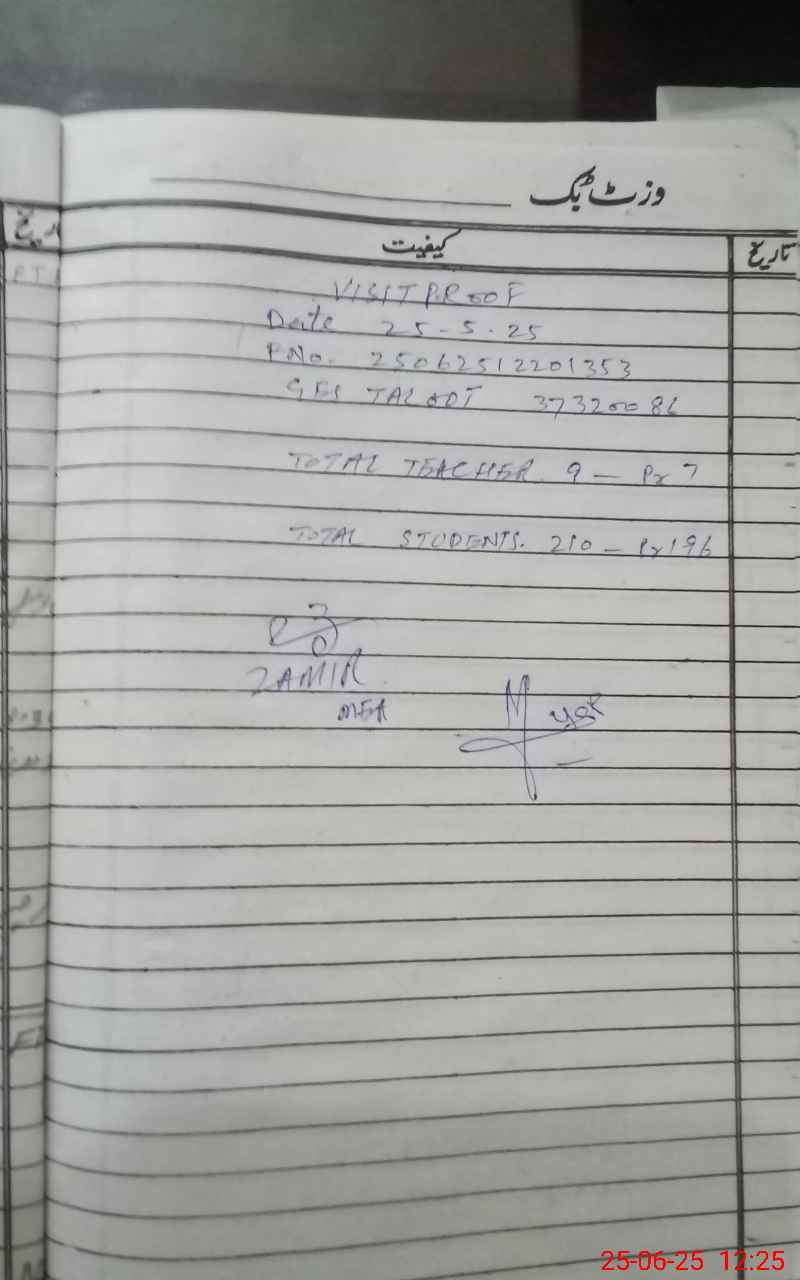 وزٹ بک
تاریخ
کیفیت
تاریخ
VISIT PROOF
Date 25-5-25
PNo. 25062512201353
GES TALOOT 37320086
TOTAL TEACHER. 9 — Pr 7
TOTAL STUDENTS. 210 — Pr 196
ZAMIR
MEA
25-06-25 12:25